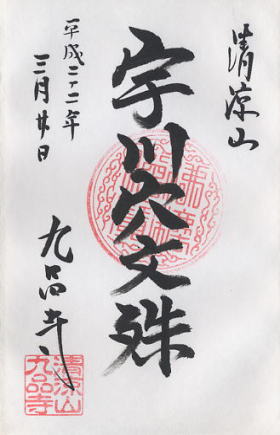 清涼山
宇川穴文殊
平成二十二年
三月廿日
九品寺
清涼山
九品寺